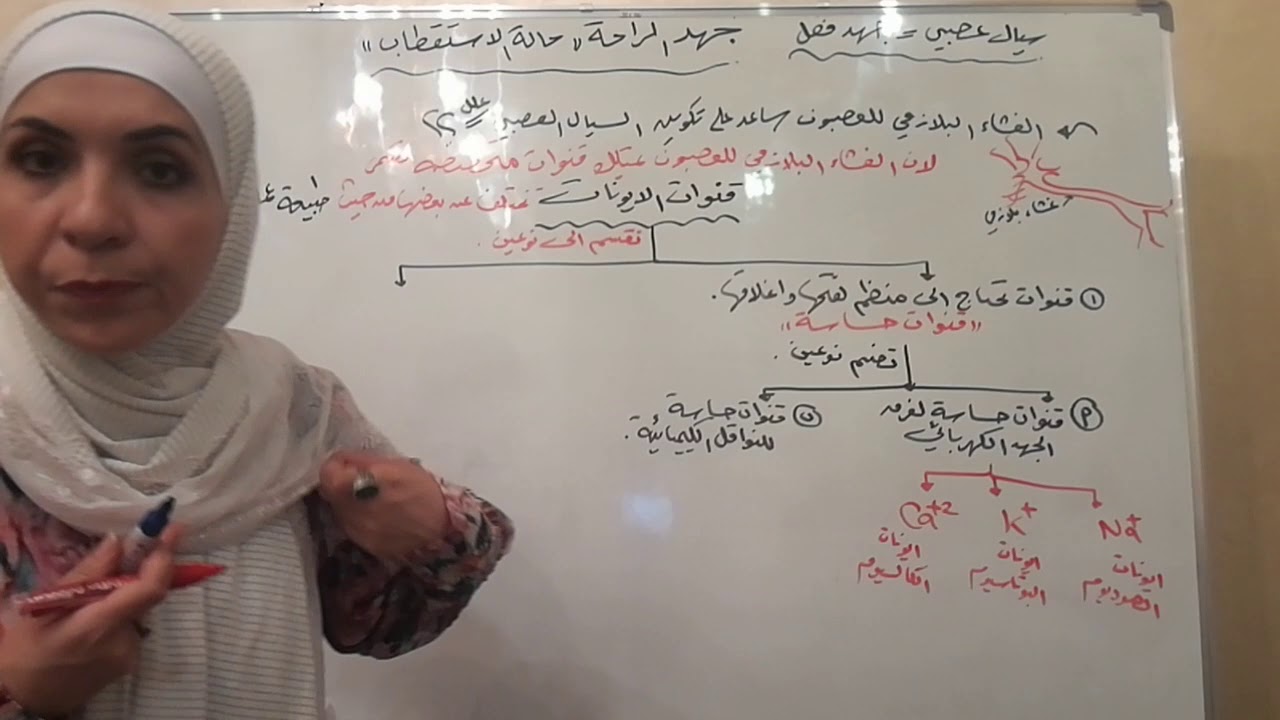 سيال عصبي = جهد فعل
جهد الراحة "حالة الاستقطاب"
الغشاء البلازمي للعصبون ساعد على تكوين السيال العصبي علل ؟
لان الغشاء البلازمي للعصبون يمتلك قنوات متخصصة تسمى
قنوات الايونات تختلف عن بعضها من حيث طبيعة
غشاء بلازمي
تقسم الى نوعين .
① قنوات تحتاج الى منظم لفتحها واغلاقها .
"قنوات حساسة"
تضم نوعين .
أ قنوات حساسة لفرق
الجهد الكهربائي
ب قنوات حساسة
للنواقل الكيميائية .
Na+
ايونات
الصوديوم
K+
ايونات
البوتاسيوم
Ca+2
ايونات
الكالسيوم